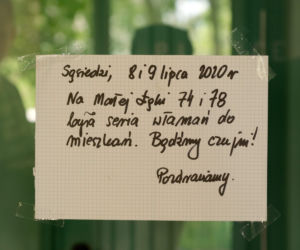 Sąsiedzi, 8 i 9 lipca 2020 r
Na Małej Łąki 74 i 78
była seria włamań do
mieszkań. Bądźmy czujni!
Pozdrawiamy.